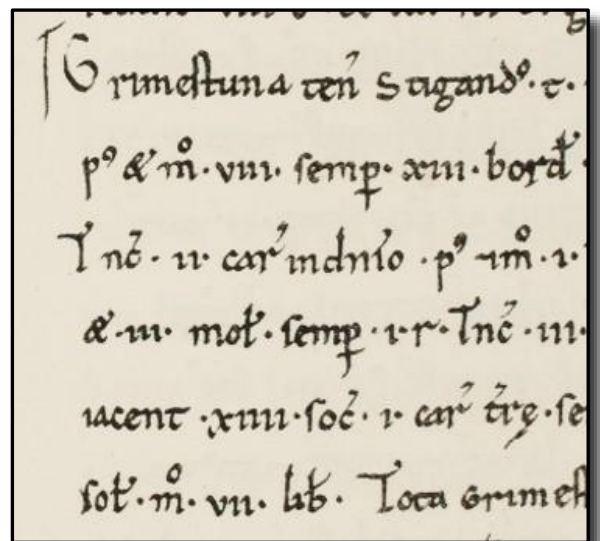 Grimestuna teñ Stigandꝰ· t·
pꝰ & m̊· viii· semp̱· xiii· bord̛
Tnc̄· ii· car̛ indnīo· pꝰ ⁊m̊· i·
&· iii· mol̛· semp̱· i· r̛· Tnc̄· iii·
iacent· xiiii· soc̄· i· car̛ t̄rę· se
sol̛· m̊· vii· lib̛· Tota Grimes